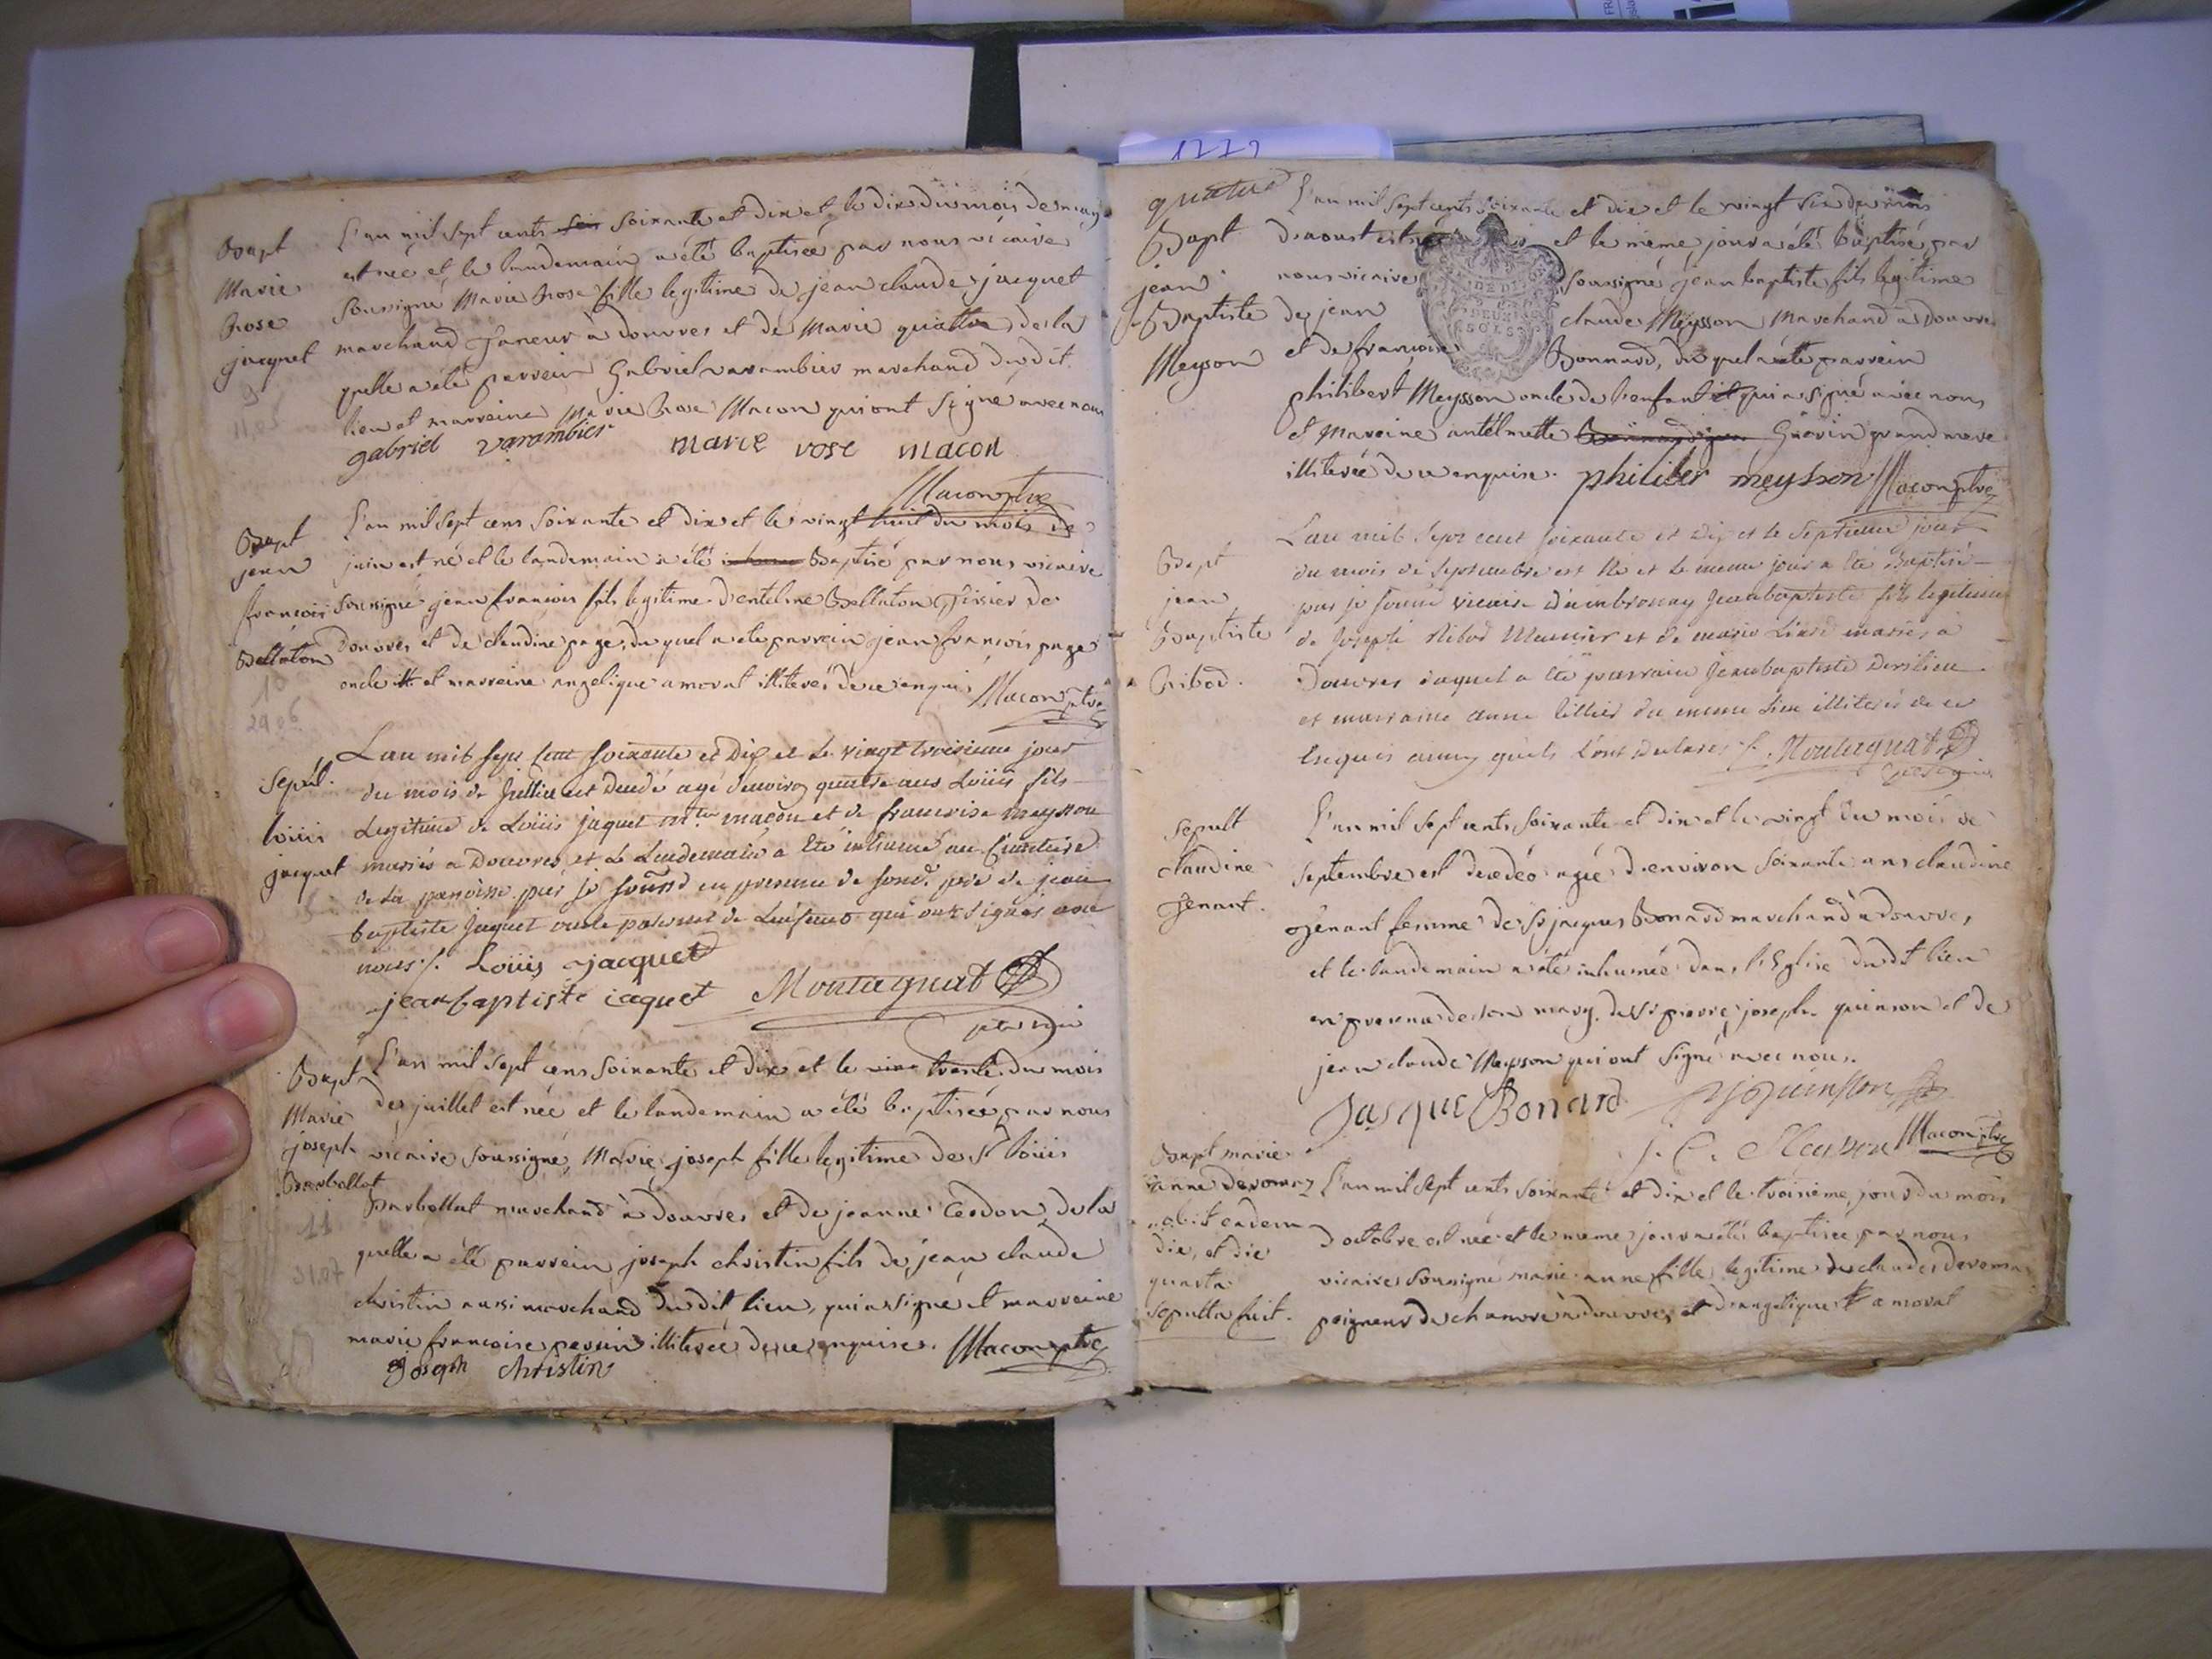 1772
Bapt
Marie
Rose
jacquet
9
11.05
L'an mil sept cents soixante et dix et le dix du mois de may
est née et le landemain a été baptisée par nous vicaire
soussigné Marie Rose fille legitime de jean claude jacquet
marchand à douvres et de Marie de la
quelle a été parrein Gabriel varambier marchand du dit
lieu et marreine Marie Rose Macon qui ont signé avec nous
gabriel varambier marie rose macon
Macon ptre
Bapt
jean
francois
Bellaton
10
29.06
L'an mil sept cens soixante et dix et le vingt huit du mois de
juin est né et le landemain a été Baptisé par nous vicaire
soussigné jean francois fils legitime d'entelme Bellaton de
douvres et de claudine page, du quel a été parrein jean francois page
oncle et marreine angelique amorat illiterés de ce enquis Macon ptre
Sepul.
loüis
jacquet
L'an mil sept cent soixante et dix et le vingt troisieme jour
du mois de Juillet est decedé agé d'environ quatre ans Loüis fils
Legitime de Loüis jaquet macon et de francoise meysson
mariés a Douvres et Le Landemain a été inhumé au Cimetiere
de la paroisse par je en presence de pere de jean
baptiste Jaquet oncle paternel de L'enfant qui ont signés avec
nous /. Loüis jacquet
jean baptiste jaquet Montagnat
Bapt
Marie
joseph
Barbollat
11
31.07
L'an mil sept cens soixante et dix et le trente du mois
de juillet est née et le landemain a été baptisée par nous
vicaire soussigné, Marie joseph fille legitime de Sr loüis
Barbollat marchand à douvres et de jeanne Cerdon, de la
quelle a été parrein joseph christin fils de jean claude
christin aussi marchand du dit lieu, qui a signé et marreine
marie francoise perrin illiterée de ce enquise. Macon ptre
joseph christin
quatre
Bapt
jean
Baptiste
Meysson
L'an mil sept cents soixante et dix et le vingt six du mois
d'aoust est né et le meme jour a été baptisé par
nous vicaire soussigné jean baptiste fils legitime
de jean claude Meysson Marchand a Douvres
et de francoise Bonnard, du quel a été parrein
philibert Meysson oncle de l'enfant qui a signé avec nous
et Mareine antelmette Guerin grand mere
illiterée de ce enquise. philiber meysson Macon ptre
Bapt
jean
Baptiste
Ribod.
L'an mil sept cent soixante et dix et le septieme jour
du mois de septembre est né et le meme jour a été Baptisé
par je vicaire d'ambronay Jean baptiste fils legitime
de Joseph Ribod Meunier et de marie mariés a
Douvres duquel a été parrain Jean baptiste
et marraine anne du meme lieu illiterés de ce
Enquis ainsy qu'ils L'ont declarés /. Montagnat
Sepult
claudine
genant.
L'an mil sept cents soixante et dix et le vingt du mois de
septembre est decedée agée d'environ soixante ans claudine
genant femme de Sr jacques Bonard marchand a douvres,
et le landemain a été inhumée dans l'Eglise du dit lieu
en presence de son mary, de Sr pierre joseph quinson et de
jean claude Meysson qui ont signé avec nous.
Jasque Bonard pjquinson
J. C. Meysson Macon ptre
Bapt marie
anne
obiit eadem
die, et die
quarta
sepulta fuit.
L'an mil sept cents soixante et dix et le troisieme jour du mois
d'octobre est née et le meme jour a été baptisée par nous
vicaire soussigné marie anne fille legitime de claude
peigneur de chanvre à douvres et d'angelique amorat